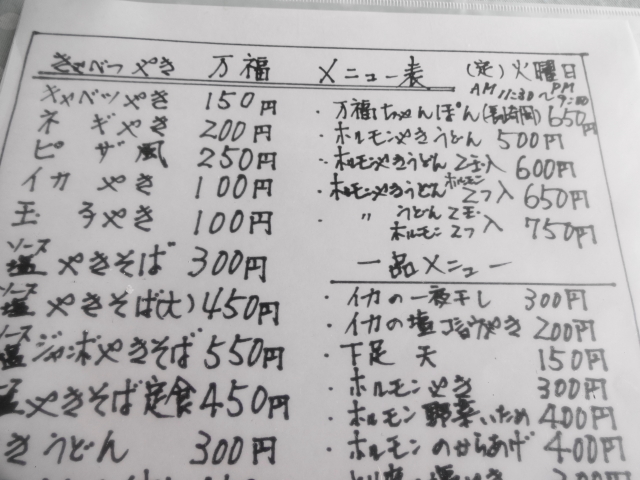 きゃべつやき 万福 メニュー表 (定)火曜日
AM 11:30〜PM 9:00
キャベツやき 150円
ネギやき 200円
ピザ風 250円
イカやき 100円
玉子やき 100円
ソース
塩 やきそば 300円
ソース
塩 やきそば(大) 450円
ソース
塩 ジャンボやきそば 550円
やきそば定食 450円
きうどん 300円
・万福ちゃんぽん(長崎風) 650円
・ホルモンやきうどん 500円
・ホルモンやきうどん 2玉入 600円
・ホルモンやきうどん ホルモン2つ入 650円
・〃 うどん2玉 ホルモン2つ入 750円
一品メニュー
・イカの一夜干し 300円
・イカの塩コショウやき 200円
・下足天 150円
・ホルモンやき 300円
・ホルモン野菜いため 400円
・ホルモンのからあげ 400円